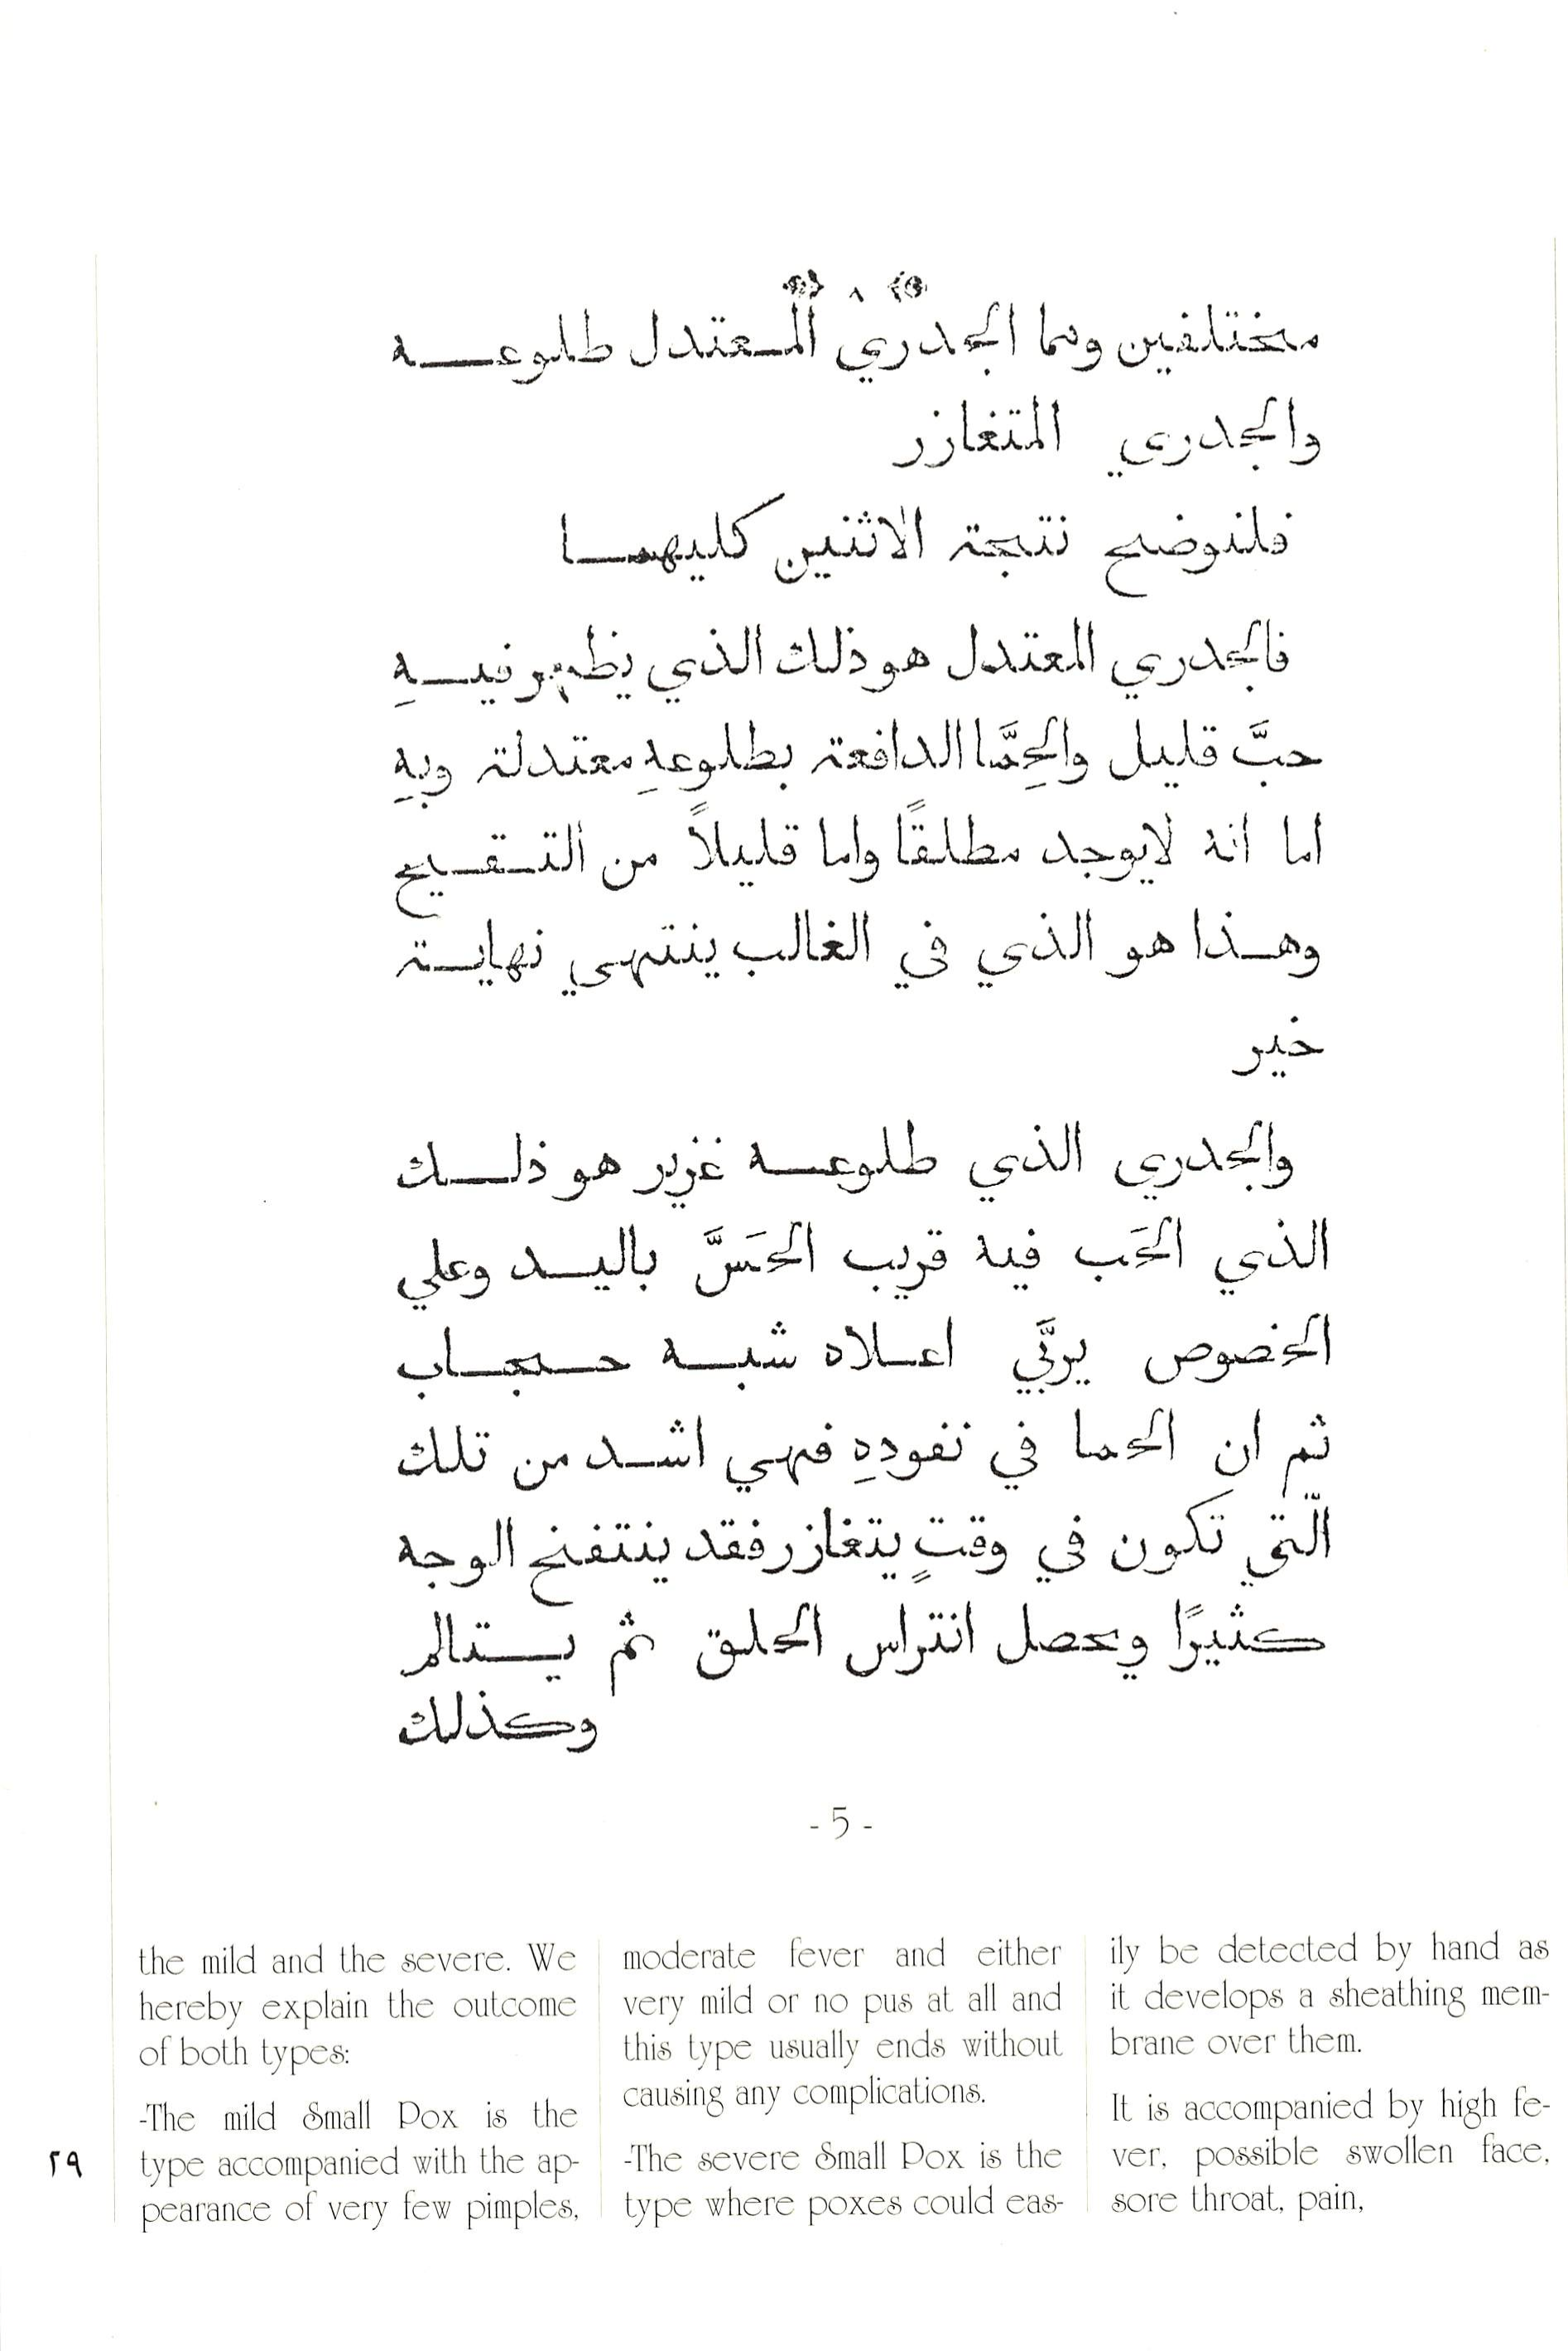 ٨
مختلفين وهما الجدري المعتدل طلوعه
والجدري المتغازر
فلنوضح نتجة الاثنين كليهما
فالجدري المعتدل هو ذلك الذي يظهر فيهِ
حبَّ قليل والحِمَّا الدافعة بطلوعهِ معتدلة وبهِ
اما انه لايوجد مطلقًا واما قليلاً من التقيح
وهذا هو الذي في الغالب ينتهي نهاية
خير
والجدري الذي طلوعه غزير هو ذلك
الذي الحَب فيه قريب الحَسَّ باليد وعلي
الخصوص يربَّي اعلاه شبه حجاب
ثم ان الحما في نفودهِ فهي اشد من تلك
الّتي تكون في وقتٍ يتغازر فقد ينتفخ الوجه
كثيرًا ويحصل انتراس الحلق ثم يستالم
وكذلك
- 5 -
the mild and the severe. We
hereby explain the outcome
of both types:
-The mild Small Pox is the
type accompanied with the ap-
pearance of very few pimples,
moderate fever and either
very mild or no pus at all and
this type usually ends without
causing any complications.
-The severe Small Pox is the
type where poxes could eas-
ily be detected by hand as
it develops a sheathing mem-
brane over them.
It is accompanied by high fe-
ver, possible swollen face,
sore throat, pain,
٢٩